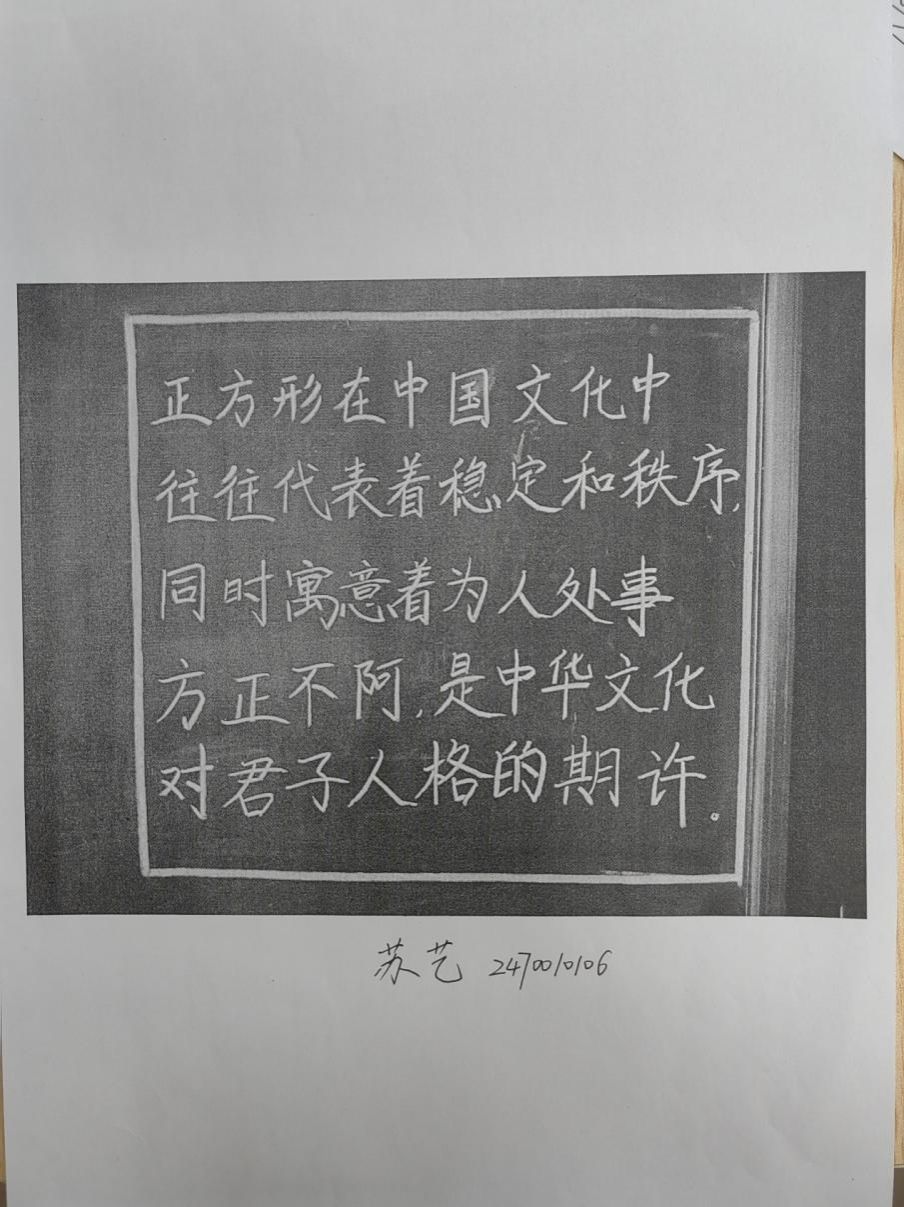 正方形在中国文化中
往往代表着稳定和秩序,
同时寓意着为人处事
方正不阿,是中华文化
对君子人格的期许。
苏艺 2470010106